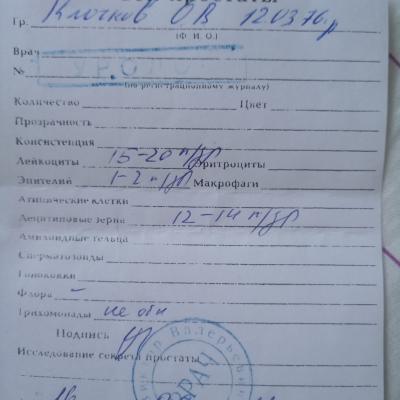 простаты
Гр. Клочков О В 12 03 76 г
(Ф. И. О.)
Врач
УРОЛО
№
(по регистрационному журналу)
Количество Цвет
Прозрачность
Консистенция
Лейкоциты 15-20 п/зр Эритроциты
Эпителий 1-2 п/зр Макрофаги
Атипические клетки
Лецитиновые зерна 12-14 п/зр
Амилоидные тельца
Сперматозоиды
Гонококки
Флора –
Трихомонады не обн
Подпись
Исследование секрета простаты
Валерьевич
ВРАЧ